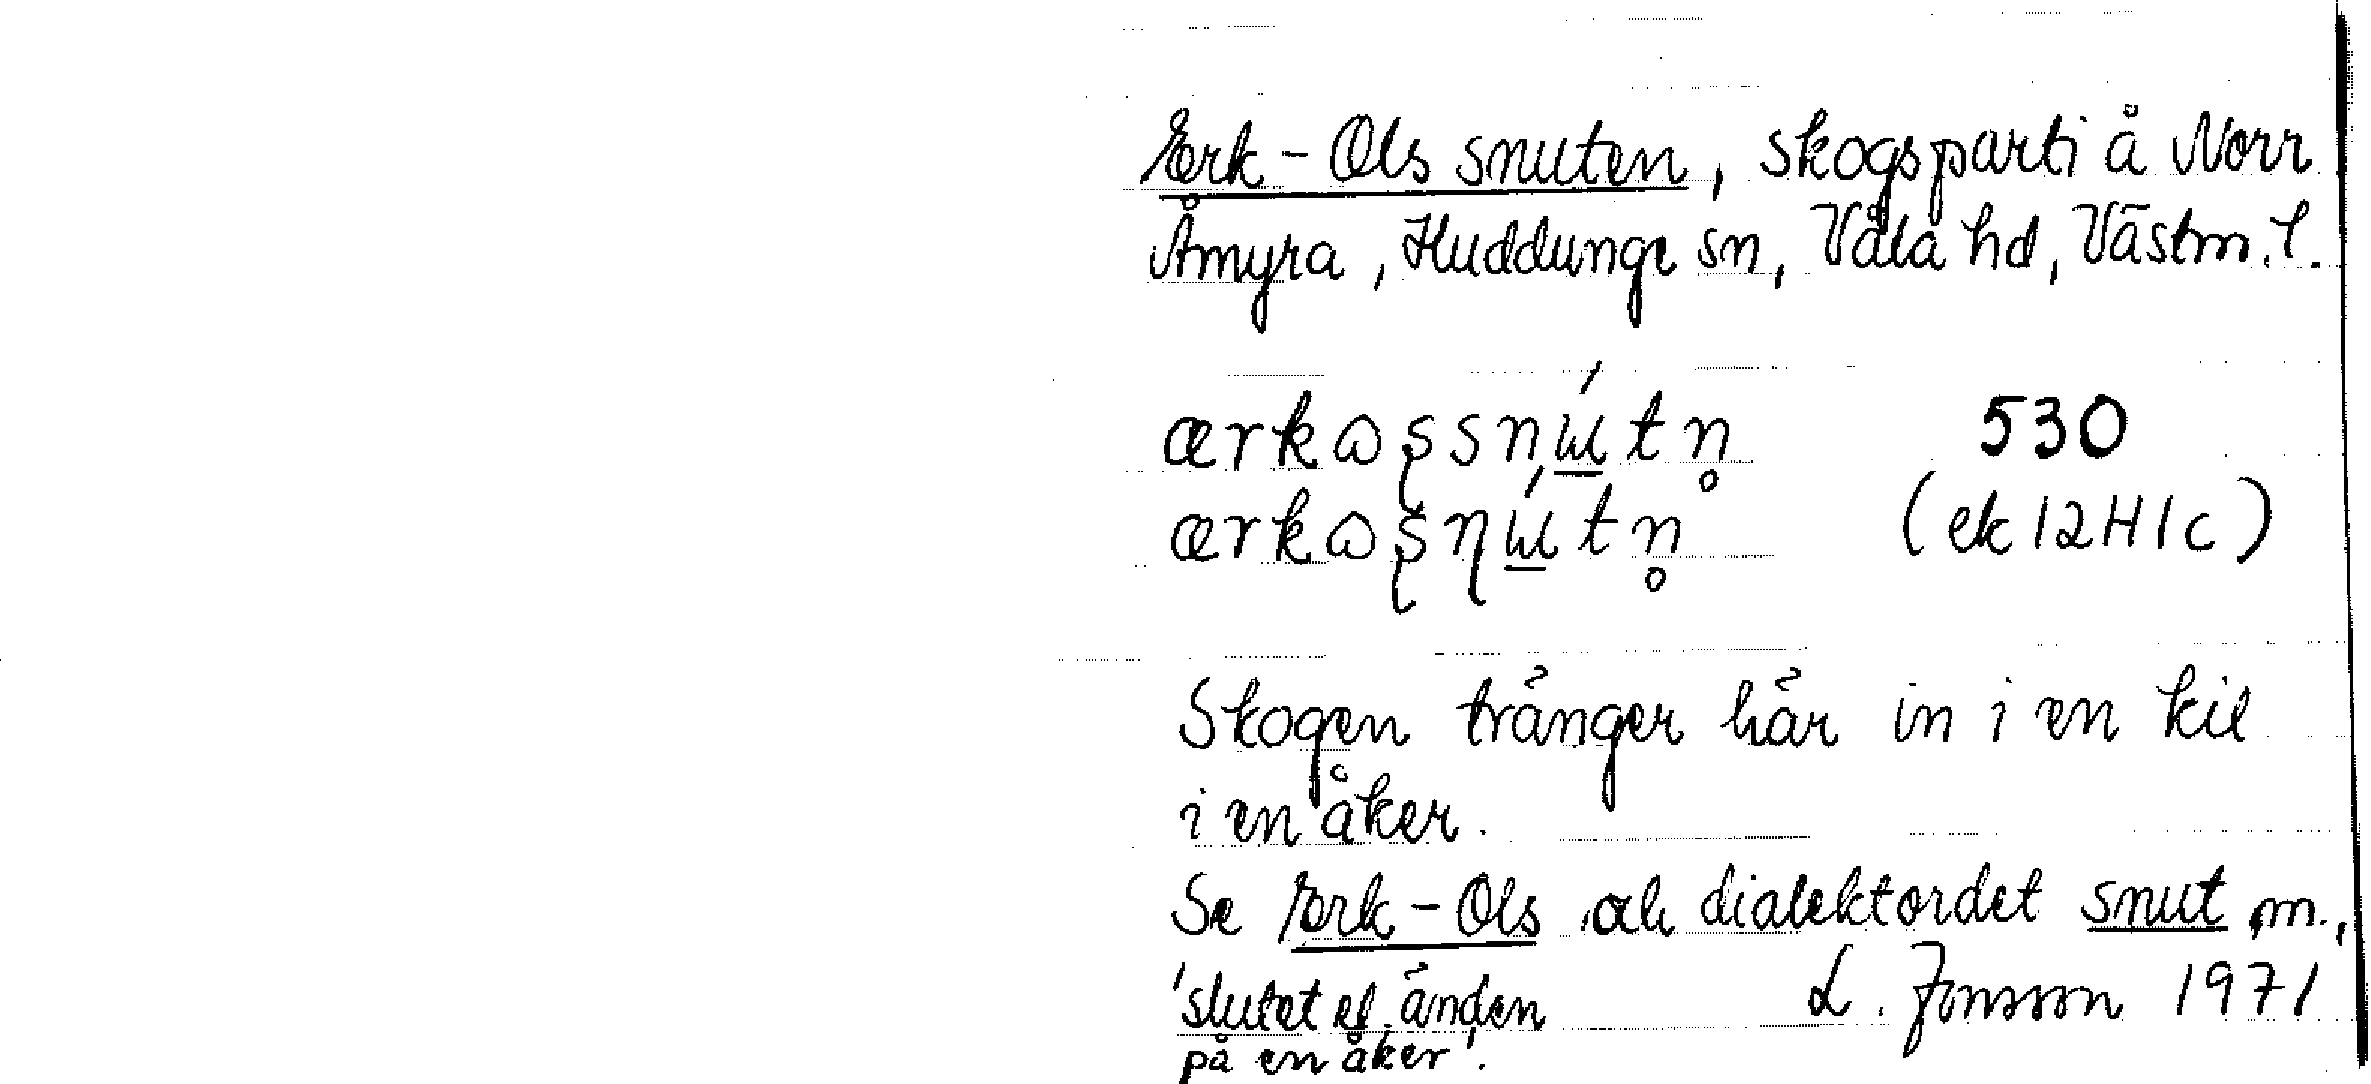 Ärk-Ols snuten, skogsparti å Norr
Åmyra, Huddunge sn, Våla hd, Västm. l.
ærkɷʂsnɯ́tn̥ 530
ærkɷʂɳɯ́tn̥ (ek 12H1c)
Skogen tränger här in i en kil
i en åker.
Se Ärk-Ols och dialektordet snut m.,
'slutet el. änden L. Jonsson 1971
på en åker'.